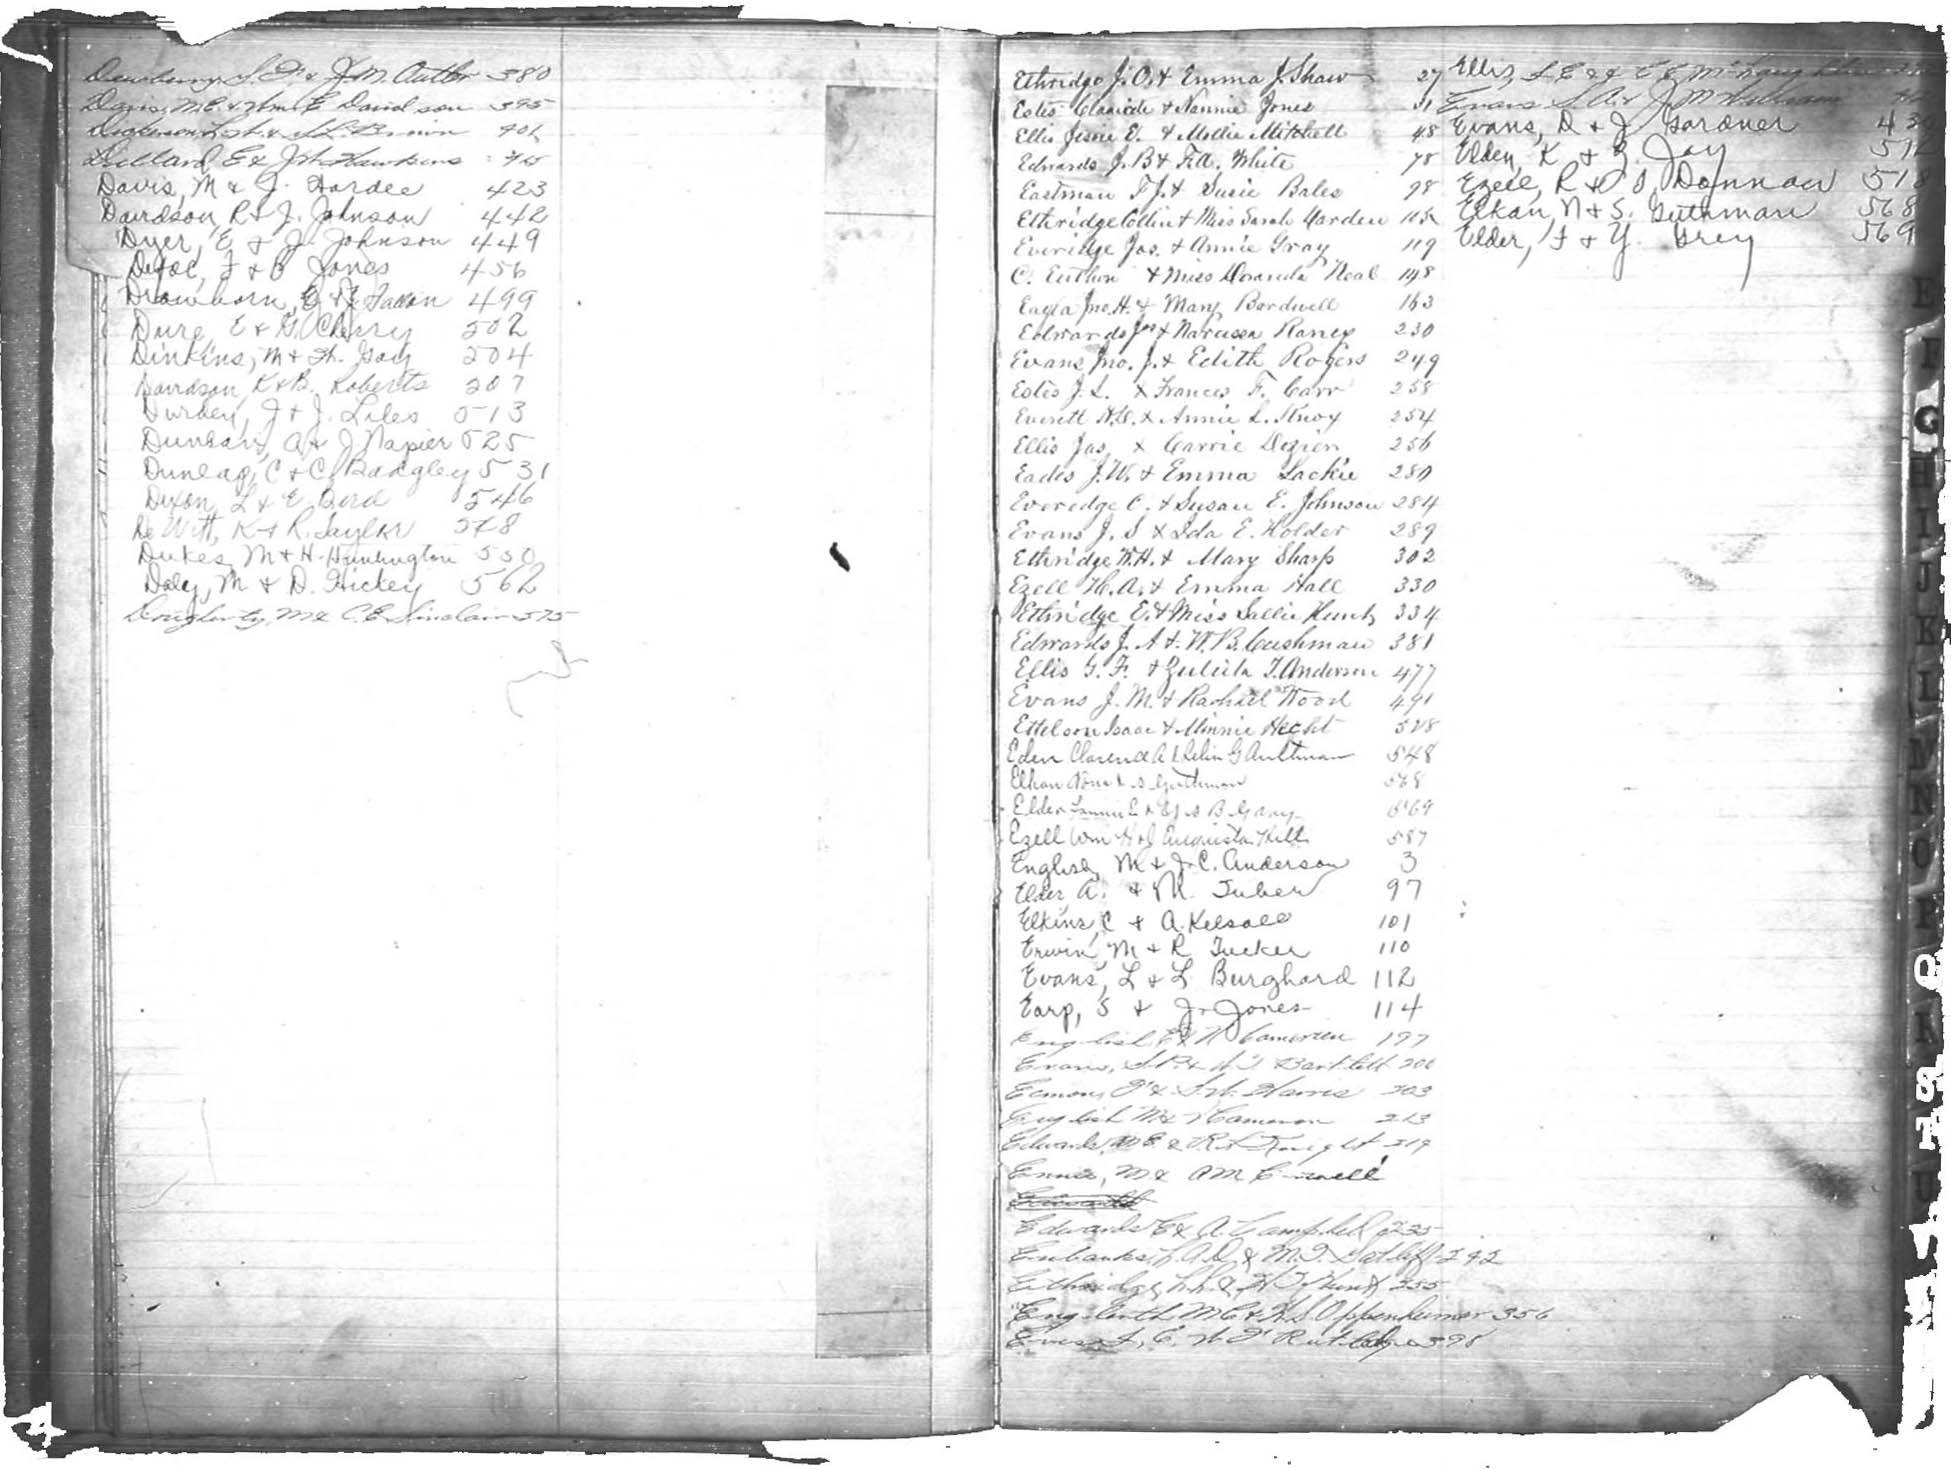 Dewberry, S. F. & J. M. Cutter 380
Davis, M. C. & Wm. E. Davidson 395
Dickerson L. & Brown 402
Dillard, E & J. W. Hawkins
Davis, M & J. Hardee 423
Davidson, R & J. Johnson 442
Dyer, E & J. Johnson 449
F & B Jones 456
499
Dure, E & G. Cherry 502
Dinkins, M & H. Gay 504
Davidson, K & B. Roberts 507
Durden, J & J. Liles 513
Duncan, A & J Napier 525
Dunlap, C & C. Badgley 531
Dixon, L & E. Bird 546
De Witt, K & R. Taylor 548
Dukes, M & H. Huntington 550
Daly, M & D. Hickey 562
Dougherty, M & C. E. Sinclair 575
Ethridge J. O. & Emma J. Shaw 27
Estis & Nannie Jones 31
Ellis Jesse & Mollie Mitchell 48
Edwards J. B & White 78
Eastman T. J. & Susie Bales 98
Ethridge Collin & Miss Sarah Harden
Everidge Jas. & Annie Gray 119
C. & Miss Neal 148
Jno. H. & Mary Bardwell 163
Edwards Jas & Narcissa Raney 230
Evans Jno. J. & Edith Rogers 249
Estis J. L. & Frances F. Carr 258
Everett & Annie L. Knox 254
Ellis Jas. & Carrie Dozier 256
Eades J. W. & Emma Lackie 280
Everedge C. & Susan E. Johnson 284
Evans J. S & Ida E. Holder 289
Ethridge W. H. & Mary Sharp 302
Ezell H. A. & Emma Hall 330
Ethridge E. & Miss Sallie Hunt 334
Edwards J. A & W. B. Cushman 381
Ellis G. F. & T. Anderson 477
Evans J. M. & Rachael Wood 491
Ettelson Isaac & Minnie Hecht 528
Eden Clarence A & G Aultman 548
Elkan & S. Guthman 568
Elder E & B. Gary 569
Ezell Wm H & J Augusta Hill 587
English, M & J. C. Anderson 3
Elder A. & M. Tuber 97
Elkins, C & A. Kelsall 101
Erwin, M & R Tucker 110
Evans, L & L Burghard 112
Earp, S & J. Jones 114
English E & N Cameron 197
Evans, S. P. & Bartlett 200
& S. W. Harris 203
English M & Cameron 213
Edwards, & Knight 219
Ennis, M & A M
Edwards E & A. Campbell 235
Eubanks, L. A. D. & M. T. Ratliff 292
Ethridge, & H. T. Hunt 355
M C & H. S. Oppenheimer 356
Rutledge 398
Ellis, L E & E E McLaughlin
Evans S. A. & J M
Evans, D & J Gardner
Elden, K & G. Jay
Ezell, R & O. Donnan 518
Elkan, N & S. Guthman 568
Elder, F & Y. Grey 569